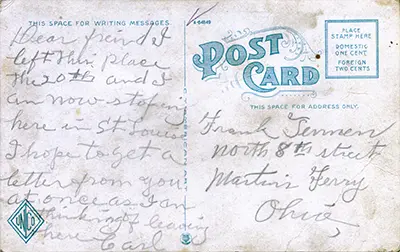 THIS SPACE FOR WRITING MESSAGES.
Dear freind I
left this place
the 20th and I
am now stoping
here in St Louise
I hope to get a
letter from you
at once as I am
thinking of leaving
here Earl
POST
CARD
THIS SPACE FOR ADDRESS ONLY.
PLACE
STAMP HERE
DOMESTIC
ONE CENT
FOREIGN
TWO CENTS
Frank
north 8th street
Martins Ferry
Ohio,